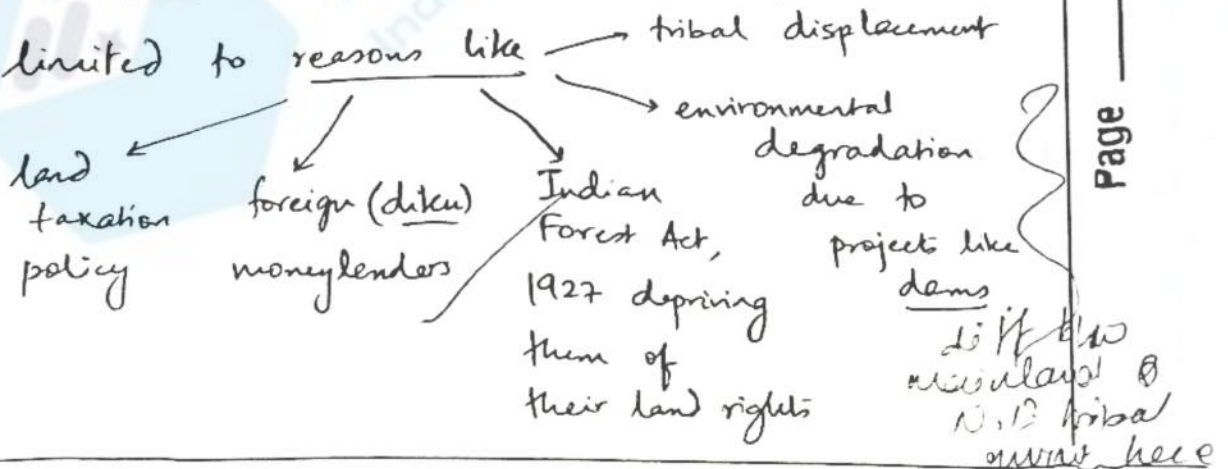 limited to reasons like
tribal displacement
environmental
degradation
due to
projects like
dams
land
taxation
policy
foreign (diku)
moneylenders
Indian
Forest Act,
1927 depriving
them of
their land rights
Page
diff
mainland &
tribal
here